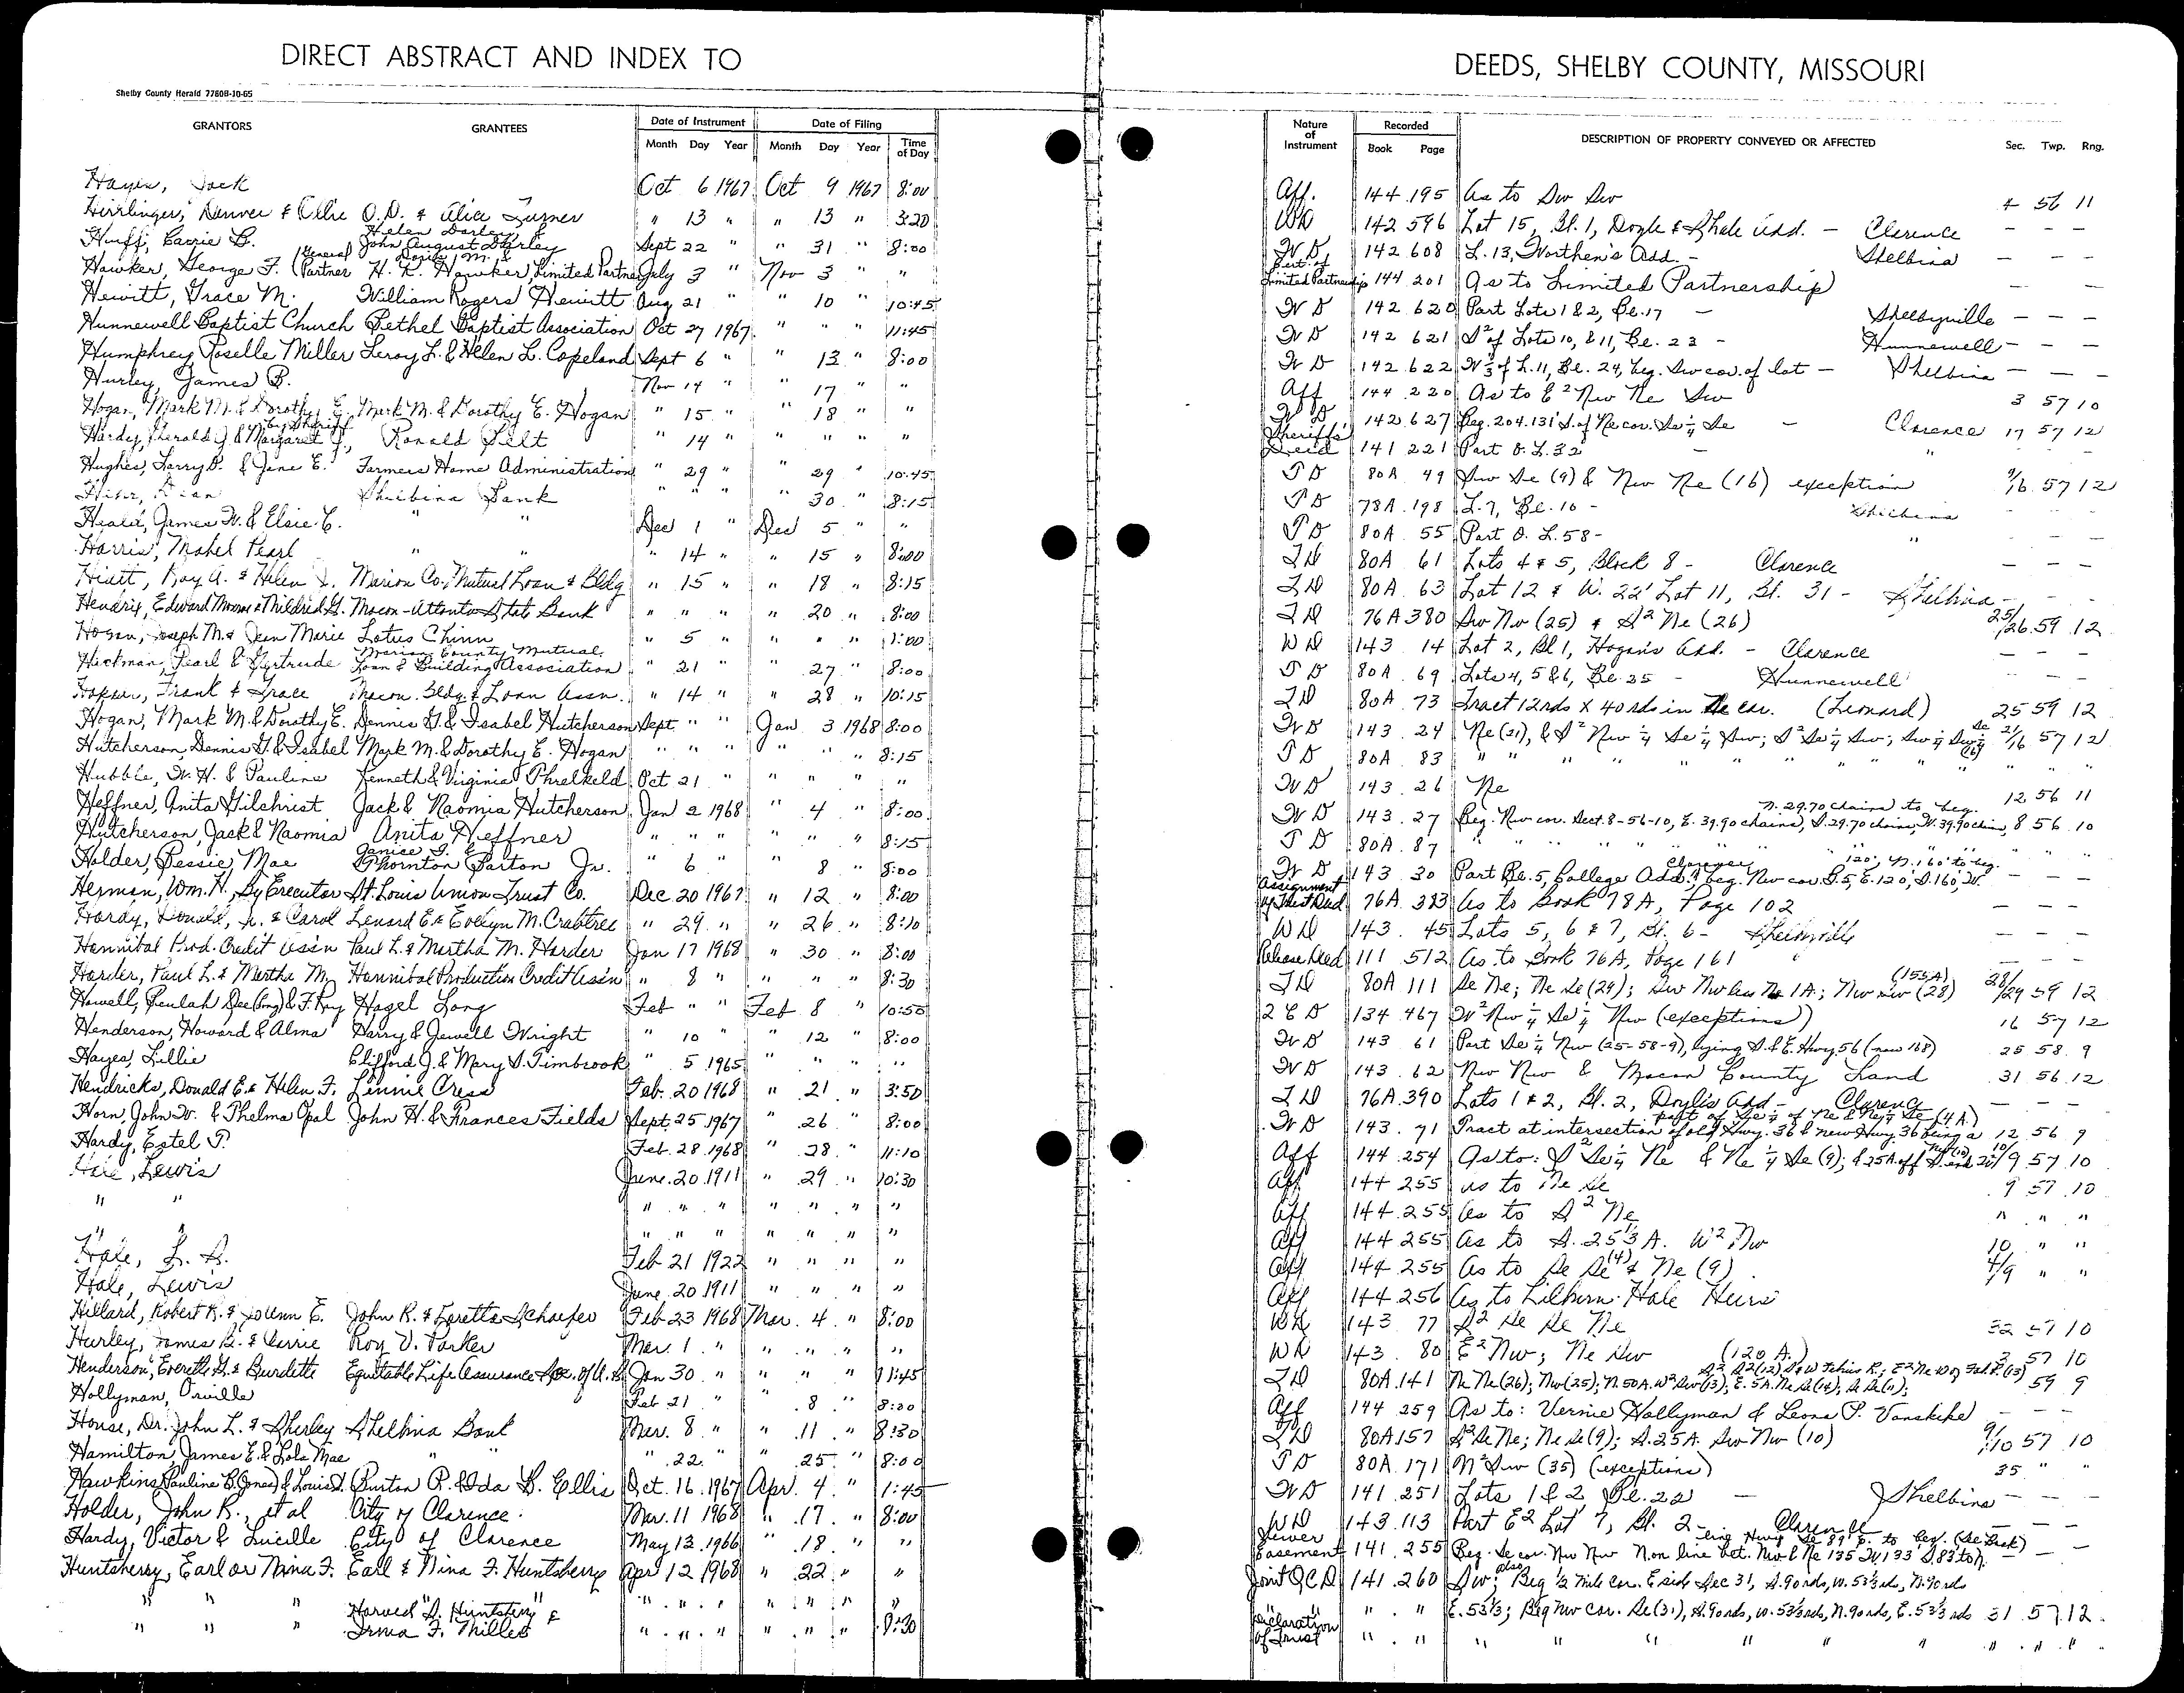 DIRECT ABSTRACT AND INDEX TO
Shelby County Herald 77608-10-65
GRANTORS GRANTEES Date of Instrument Date of Filing
Month Day Year Month Day Year Time of Day
Hayes, Jack Oct 6 1967 Oct 9 1967 8:00
Hirrlinger, Denver & Ollie O.D. & Alice Turner " 13 " " 13 " 3:20
Huff, Carrie B. Helen Darley & John August Darley Sept 22 " " 31 " 8:00
Hawker, George F. (General Partner H. K. Hawker, Limited Partner July 3 " Nov 3 " "
Hewitt, Grace M. William Rogers Hewitt Aug 21 " " 10 " 10:45
Hunnewell Baptist Church Bethel Baptist Association Oct 27 1967 " " " 11:45
Humphrey, Roselle Miller Leroy L. & Helen L. Copeland Sept 6 " " 13 " 8:00
Hurley, James B. Nov 14 " " 17 " "
Hogan, Mark M. & Dorothy E. Mark M. & Dorothy E. Hogan " 15 " " 18 " "
Hardy, Gerald J. & Margaret J., by Sheriff Ronald Pilt " 14 " " " " "
Hughes, Larry B. & Jane E. Farmers Home Administration " 29 " " 29 " 10:45
Shelbina Bank " " " " 30 " 8:15
Heald, James W. & Elsie C. " " Dec 1 " Dec 5 " "
Harris, Mabel Pearl " " " 14 " " 15 " 8:00
Hiatt, Roy A. & Helen J. Marion Co. Mutual Loan & Bldg " 15 " " 18 " 8:15
Hendrix, Edward Monroe & Mildred G. Macon-Atlanta State Bank " " " " 20 " 8:00
Hogan, Joseph M. & Jean Marie Lotus Chinn " 5 " " " " 1:00
Hickman, Pearl & Gertrude Marion County Mutual Loan & Building Association " 21 " " 27 " 8:00
Frank & Grace Macon Bldg. & Loan Assn. " 14 " " 28 " 10:15
Hogan, Mark M. & Dorothy E. Dennis G. & Isabel Hutcherson Sept " " Jan 3 1968 8:00
Hutcherson, Dennis G. & Isabel Mark M. & Dorothy E. Hogan " " " " " " 8:15
Hubble, W. H. & Pauline Kenneth & Virginia Threlkeld Oct 21 " " " " "
Heffner, Anita Gilchrist Jack & Naomia Hutcherson Jan 2 1968 " 4 " 8:00
Hutcherson, Jack & Naomia Anita Heffner " " " " " " 8:15
Holder, Bessie Mae Janice I. & Thornton Barton Jr. " 6 " 8 " 8:00
Herman, Wm. H., By Executor St. Louis Union Trust Co. Dec 20 1967 " 12 " 8:00
Hardy, Donald, Jr. & Carol Lenard E. & Evelyn M. Crabtree " 29 " " 26 " 8:10
Hannibal Prod. Credit Ass'n Paul L. & Martha M. Harder Jan 17 1968 " 30 " 8:00
Harder, Paul L. & Martha M. Hannibal Production Credit Ass'n " 8 " " " " 8:30
Howell, Beulah Dee (Long) & F. Ray Hazel Long Feb " " Feb 8 " 10:50
Henderson, Howard & Alma Harry & Jewell Wright " 10 " " 12 " 8:00
Hayes, Lillie Clifford J. & Mary S. Timbrook " 5 1965 " " " "
Hendricks, Donald E. & Helen F. Linnie Cress Feb. 20 1968 " 21 " 3:50
Horn, John W. & Thelma Opal John H. & Frances Fields Sept. 25 1967 " 26 " 8:00
Hardy, Estel P. Feb. 28 1968 " 28 " 11:10
Hale, Lewis June 20 1911 " 29 " 10:30
" " " " " " " " "
" " " " " " " " "
Hale, L. L. Feb 21 1922 " " " "
Hale, Lewis June 20 1911 " " " "
Hillard, Robert R. & JoUnn E. John R. & Loretta Schaefer Feb 23 1968 Mar. 4 " 8:00
Hurley, James B. & Verrie Roy V. Parker Mar. 1 " " " " "
Henderson, Everett G. & Burdette Equitable Life Assurance Soc. of U.S. Jan 30 " " " " 11:45
Hollyman, Orville Feb 21 " " 8 " 8:00
House, Dr. John L. & Shirley Shelbina Bank Mar. 8 " " 11 " 8:30
Hamilton, James E. & Lola Mae " " " 22 " " 25 " 8:00
Hawkins, Pauline B. (Jones) & Louis D. Burton R. & Ida B. Ellis Oct. 16 1967 Apr. 4 " 1:45
Holder, John R., et al City of Clarence Mar. 11 1968 " 17 " 8:00
Hardy, Victor & Lucille City of Clarence May 13 1966 " 18 " "
Huntsberry, Earl or Nina F. Earl & Nina F. Huntsberry Apr 12 1968 " 22 " "
" " " " " " " " " "
" " " Harved D. Huntsberry & Irma F. Miller " " " " " " 9:30
DEEDS, SHELBY COUNTY, MISSOURI
Nature of Instrument Recorded Book Page DESCRIPTION OF PROPERTY CONVEYED OR AFFECTED Sec. Twp. Rng.
Aff. 144 195 As to Sw Sw 4 56 11
WD 142 596 Lot 15, Bl. 1, Doyle & Shale Add. - Clarence - - -
WD 142 608 L. 13, Worthen's Add. - Shelbina - - -
Cert. of Limited Partnership 144 201 As to Limited Partnership - -
WD 142 620 Part Lots 1 & 2, Bl. 17 - Shelbyville - - -
WD 142 621 S² of Lots 10, & 11, Bl. 23 - Hunnewell - - -
WD 142 622 N⅓ of L. 11, Bl. 24, beg. Sw cor. of lot - Shelbina - - -
Aff 144 220 As to E² Nw Ne Sw 3 57 10
WD 142 627 Beg. 204.131' S. of Ne cor. Se ¼ Se - Clarence 17 57 12
Sheriff's Deed 141 221 Part O. L. 32 - "
TD 80A 49 Sw Se (9) & Nw Ne (16) exception 9/16 57 12
TD 78A 198 L. 7, Bl. 10 - Shelbina
TD 80A 55 Part O. L. 58 - "
TD 80A 61 Lots 4 & 5, Block 8 - Clarence - - -
TD 80A 63 Lot 12 & W. 22' Lot 11, Bl. 31 - Shelbina - - -
TD 76A 380 Sw Nw (25) & S² Ne (26) 25/26 59 12
WD 143 14 Lot 2, Bl 1, Hogan's Add. - Clarence - - -
TD 80A 69 Lots 4, 5 & 6, Bl. 25 - Hunnewell - - -
TD 80A 73 Tract 12 rds X 40 rds in Ne cor. (Leonard) 25 59 12
WD 143 24 Ne (21), & S² Nw ¼ Se ¼ Sw; S² Se ¼ Sw; Sw ¼ Sw ¼ Se (16) 21/16 57 12
TD 80A 83 " " " " " " " " " "
WD 143 26 Ne 12 56 11
WD 143 27 Beg. Nw cor. Sect. 8-56-10, E. 39.90 chains, S. 29.70 chains, W. 39.90 chains, N. 29.70 chains to beg. 8 56 10
TD 80A 87 " " " " " " " "
WD 143 30 Part Bl. 5, College Add., Clarence beg. Nw cor. B. 5, E. 120', S. 160', W. 120', N. 160' to beg. - - -
Assignment of Trust Deed 76A 383 As to Book 78A, Page 102 - - -
WD 143 45 Lots 5, 6 & 7, Bl. 6 - Shelbyville - - -
Release Deed 111 512 As to Book 76A, Page 161 - - -
TD 80A 111 Se Ne; Ne Se (29); Sw Nw less 1A; Nw Sw (28) (155A) 28/29 59 12
QCD 134 467 W² Nw ¼ Se ¼ Nw (exceptions) 16 57 12
WD 143 61 Part Se ¼ Nw (25-58-9), lying S. & E. Hwy. 56 (now 168) 25 58 9
WD 143 62 Nw Nw & Macon County Land 31 56 12
TD 76A 390 Lots 1 & 2, Bl. 2, Doyle's Add - Clarence - - -
WD 143 71 Tract at intersection of old Hwy. 36 & new Hwy. 36 being a part of Se ¼ of Ne & Ne ¼ Se (4 A.) 12 56 9
Aff 144 254 As to: S² Se ¼ Ne & Ne ¼ Se (9); & 25A. off S. end 10/9 57 10
Aff 144 255 as to Ne Se 9 57 10
Aff 144 255 As to S² Ne " " "
Aff 144 255 As to S. 25⅓ A. W² Nw 10 " "
Aff 144 255 As to Se Se (4) & Ne (9) 4/9 " "
Aff 144 256 As to Lilburn Hale Heirs
WD 143 77 S² Se Se Ne 32 57 10
WD 143 80 E² Nw; Ne Sw (120 A.) 3 57 10
TD 80A 141 Ne Ne (26); Nw (25); N. 50A. W² Sw (13); E. 5A. Ne Se (14); Se Se (11); 59 9
Aff 144 259 As to: Vernie Hollyman & Leona P. Vanskike - - -
TD 80A 157 S² Se Ne; Ne Se (9); S. 25A. Sw Nw (10) 9/10 57 10
TD 80A 171 N² Sw (35) (exceptions) 35 " "
WD 141 251 Lots 1 & 2 Bl. 22 - Shelbina - - -
WD 143 113 Part E² Lot 7, Bl. 2 - Clarence - -
Sewer Easement 141 255 Beg. Se cor. Nw Nw N. on line bet. Nw & Ne 135' W. 133' S. 83' to - -
Joint QCD 141 260 Sw; also Beg ½ mile cor. E side Sec 31, S. 90 rds, W. 53⅓ rds, N. 90 rds
" " " E. 53⅓; Beg Nw cor. Se (31), S. 90 rds, W. 53⅓ rds, N. 90 rds, E. 53⅓ rds 31 57 12
Declaration of Trust " " " " " " " " " " "